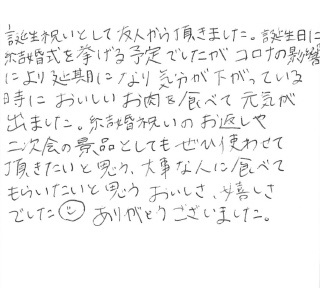 誕生祝いとして友人から頂きました。誕生日に
結婚式を挙げる予定でしたがコロナの影響
により延期になり気分が下がっている
時においしいお肉を食べて元気が
出ました。結婚祝いのお返しや
二次会の景品としてもぜひ使わせて
頂きたいと思う、大事な人に食べて
もらいたいと思うおいしさ、嬉しさ
でした☺ ありがとうございました。